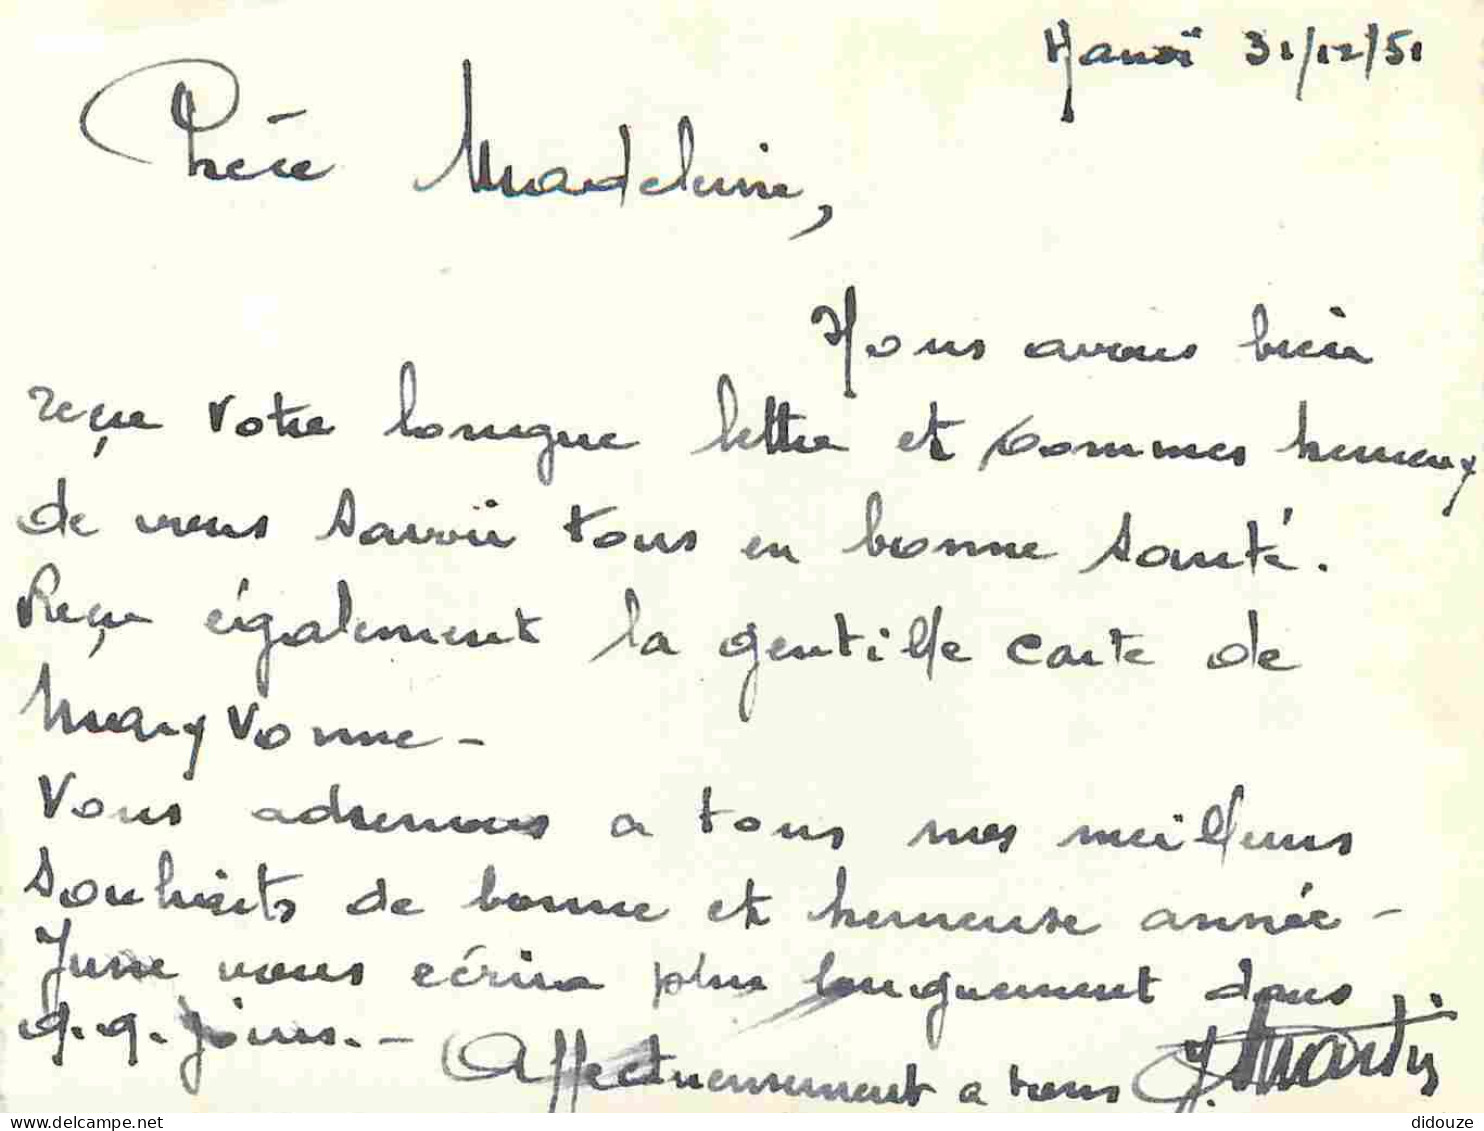 Hanoï 31/12/51
Chère Madeleine,
Nous avons bien
reçu votre longue lettre et sommes heureux
de vous savoir tous en bonne santé.
Reçu également la gentille carte de
Maryvonne -
Vous adressons a tous mes meilleurs
souhaits de bonne et heureuse année -
June vous écrira plus longuement dans
q.q. jours. -
Affectueusement a tous J. Martin
didouze